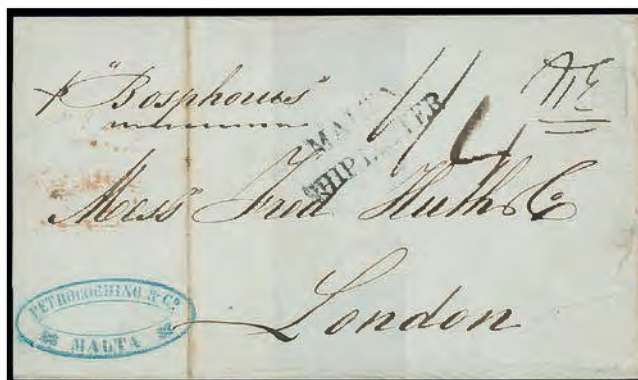 p "Bosphorus"
MALTA
SHIP LETTER
Mess Fred Huth & Co
London
PETROCOCHINO & Co.
MALTA